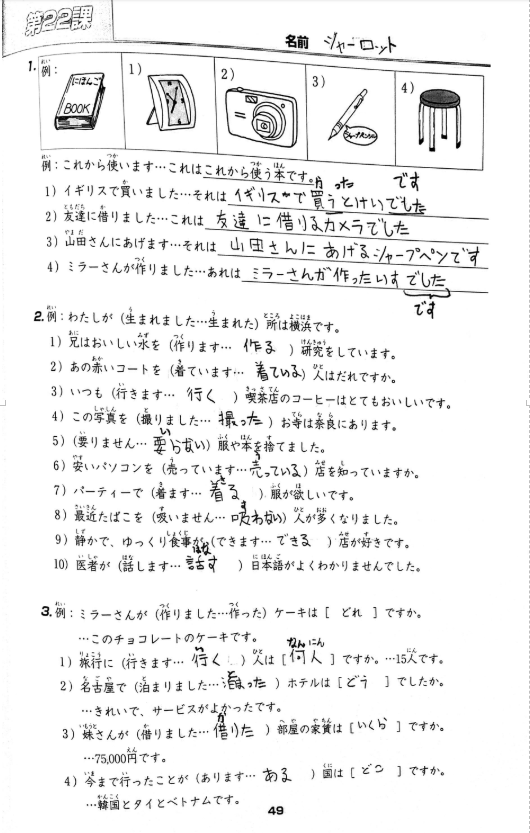 第22課
名前 シャーロット
1. 例： 1) 2) 3) 4)
にほんご
BOOK
シャープペンシル
例：これから使います…これはこれから使う本です。
かった です
1) イギリスで買いました…それは イギリスで買うとけいでした
2) 友達に借りました…これは 友達に借りるカメラでした
3) 山田さんにあげます…それは 山田さんにあげるシャープペンです
4) ミラーさんが作りました…あれは ミラーさんが作ったいすでした
です
2. 例：わたしが（生まれました…生まれた）所は横浜です。
1) 兄はおいしい水を（作ります… 作る ）研究をしています。
2) あの赤いコートを（着ています… 着ている）人はだれですか。
3) いつも（行きます… 行く ）喫茶店のコーヒーはとてもおいしいです。
4) この写真を（撮りました… 撮った ）お寺は奈良にあります。
5)（要りません… 要らない）服や本を捨てました。
6) 安いパソコンを（売っています…売っている）店を知っていますか。
7) パーティーで（着ます… 着る ）服が欲しいです。
8) 最近たばこを（吸いません… 吸わない）人が多くなりました。
9) 静かで、ゆっくり食事が（できます… できる ）店が好きです。
10) 医者が（話します… 話す ）日本語がよくわかりませんでした。
3. 例：ミラーさんが（作りました…作った）ケーキは［ どれ ］ですか。
…このチョコレートのケーキです。
1) 旅行に（行きます… 行く ）人は［ 何人 ］ですか。…15人です。
2) 名古屋で（泊まりました…泊まった）ホテルは［ どう ］でしたか。
…きれいで、サービスがよかったです。
3) 妹さんが（借りました…借りた）部屋の家賃は［いくら］ですか。
…75,000円です。
4) 今まで行ったことが（あります… ある ）国は［ どこ ］ですか。
…韓国とタイとベトナムです。
49